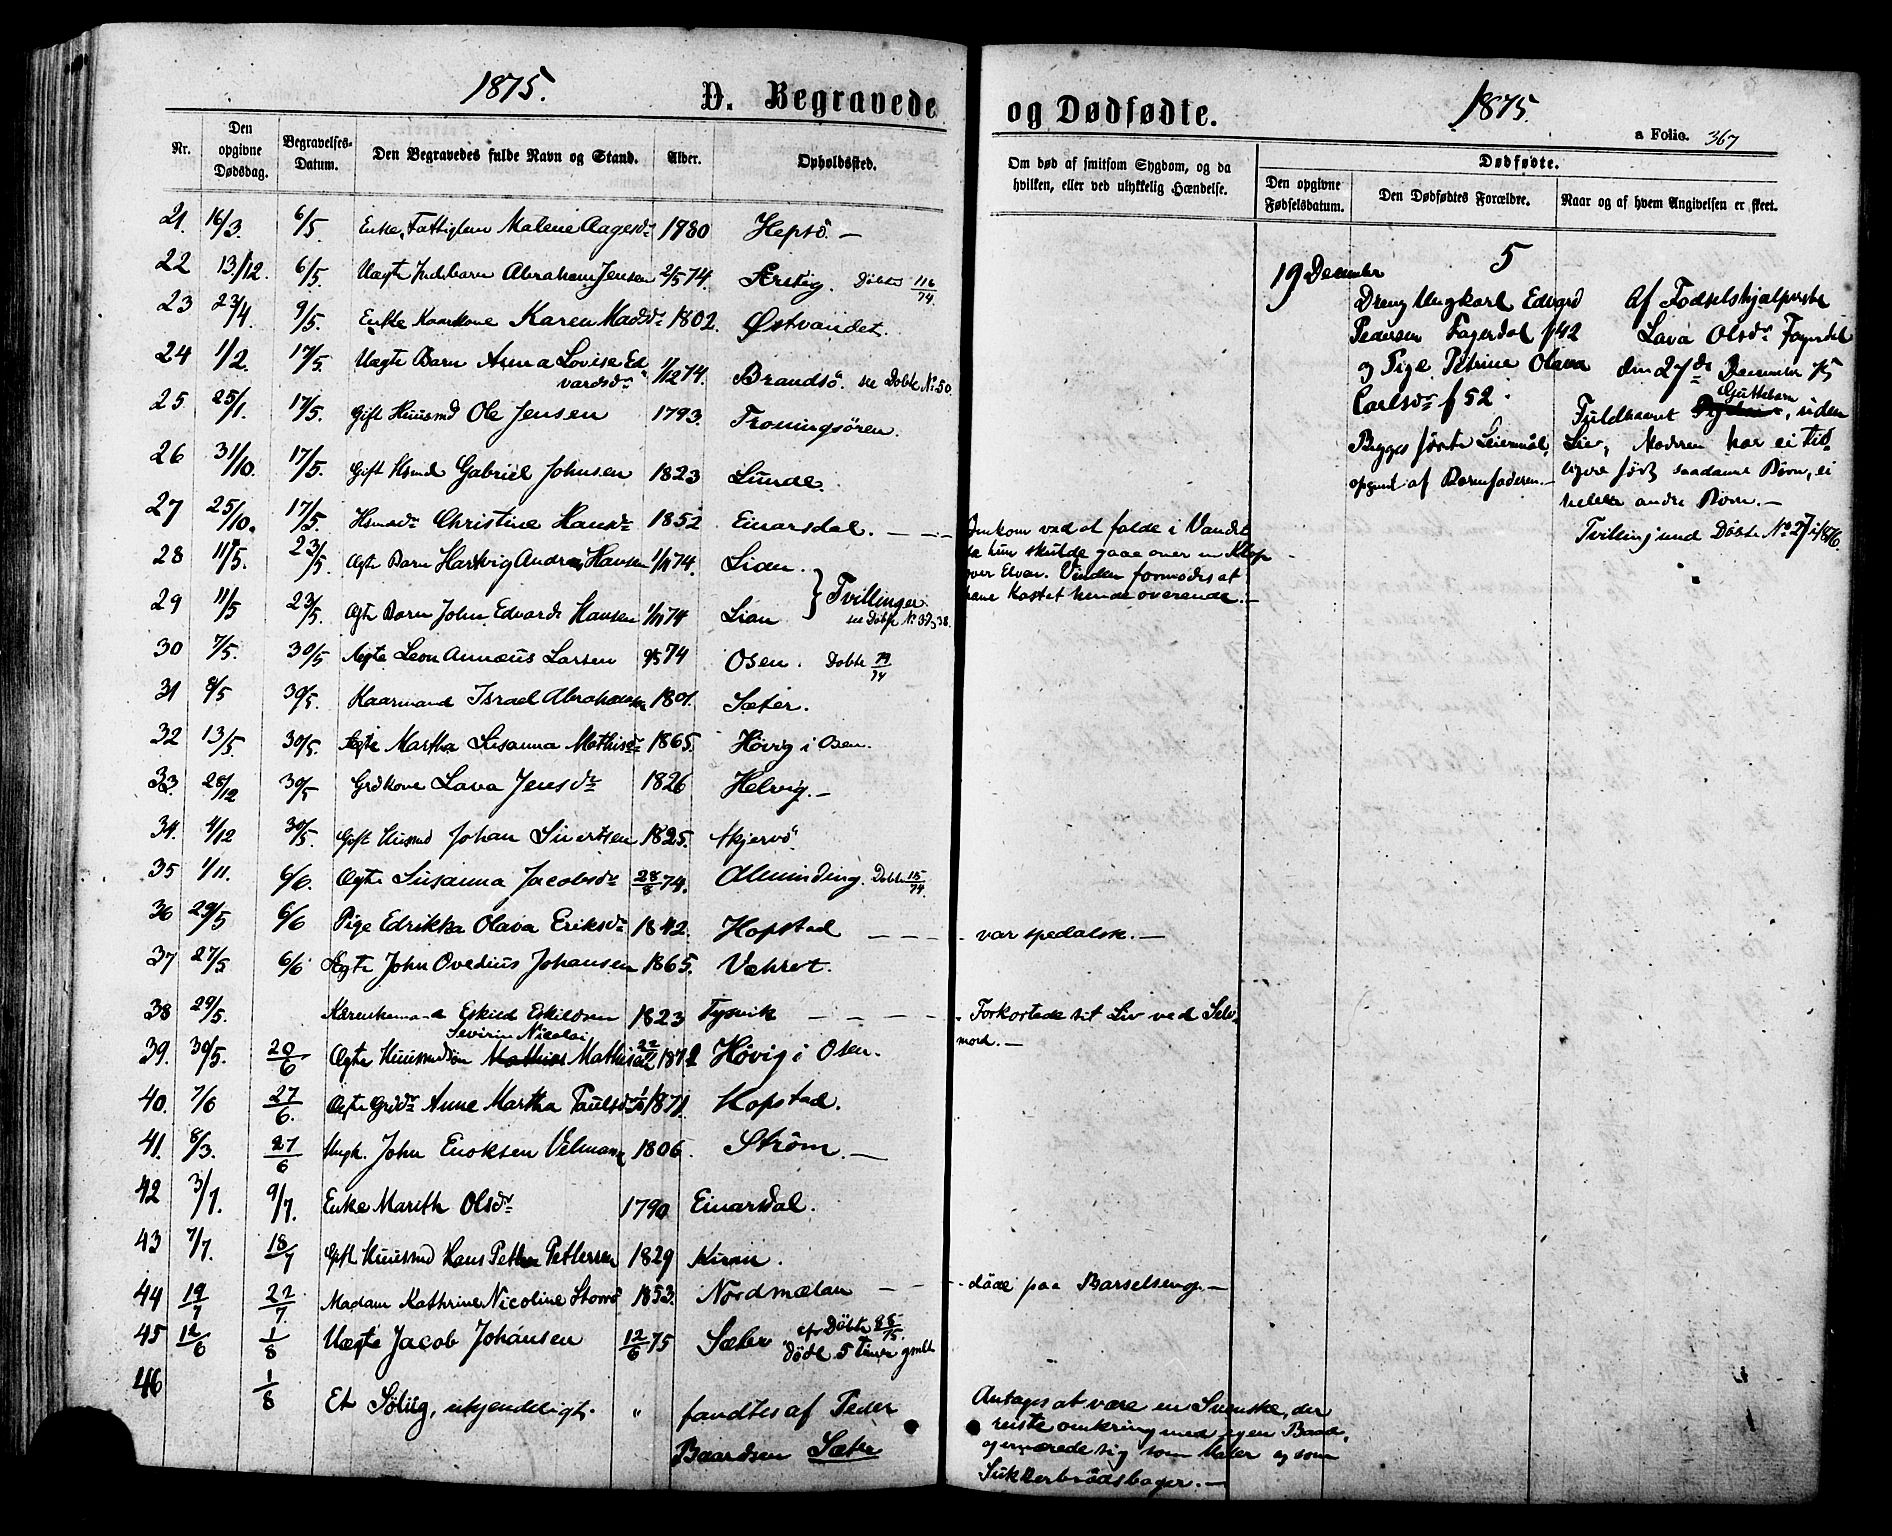 1875.
D. Begravede
Nr.
Den opgivne Dødsdag.
Begravelses-Datum.
Den Begravedes fulde Navn og Stand.
Alder.
Opholdssted.
21. 16/3. 6/5. Enke, Fattiglem Malene Aagesdr 1780 Hepsö. —
22 13/12. 6/5. Uægte Pigebarn Abraham Jensen 2/5 74. Sørstig. Döbte 116/74.
23 23/4. 9/5. Enke Kaarkone Karen Madsdr 1802. Østvandet.
24 1/2. 17/5. Uægte Barn Anna Lovise Ed
vardsdr 1/12 74. Brandsö. see Döbte No 50.
25 25/1. 17/5. Gift Huusmd Ole Jensen 1793. Troningsören.
26 31/10. 17/5. Gift Hsmd Gabriel Johnsen 1823 Lunde.
27 25/10. 17/5. Hsmdsdr Christine Hansdr 1852 Einarsdal. — — —
28 11/5. 23/5. Ægte Barn Hartvig Andreas Hansen 1/11 74. Lian.
29 11/5 23/5. Ægte Barn John Edvard Hansen 1/11 74 Lian } Tvillinger
see Döbte No 37, 38.
30 7/5. 30/5 Ægte Leon Annæus Larsen 9/5 74 Osen. Döbte 79/74
31 8/5 30/5. Kaarmand Israel Abrahamsen 1801. Sæter.
32 13/5. 30/5. Ægte Martha Susanna Mathisdr 1865. Hövig i Osen.
33. 28/12 30/5 Grdkone Lava Jensdr 1826 Helvig. —
34. 4/12 30/5. Gift Husmd Johan Sivertsen 1825. Skjervö
35 1/11. 6/6. Ægte Susanna Jacobsdr 28/8 74. Alminding. Döbte 15/74.
36 29/5 6/6 Pige Edrikka Olava Eriksdr 1842. Hopstad — — —
37 27/5 6/6 Ægte John Ovedius Johansen 1865. Vahret.
38 29/5. Eskild Eskildsen 1823 Tysvik — — —
Severin Nicolai
39. 30/5. 20/6 Ægte Huusmdsön Mathias Mathisen 22/ 1872 Hövig i Osen.
40. 7/6 27/6. Ægte Grdr Anne Martha Paulsdr 1871. Hopstad.
41. 8/3. 27/6 Ungk. John Enoksen Velmann 1806. Ström. —
42 3/7. 9/7. Enke Marith Olsdr 1790 Einarsdal.
43 7/7. 18/7 Gift Huusmd Hans Petter Pettersen 1829 Kiran.
44 19/7 22/7. Madam Kathrine Nicoline Storrö 1853. Nordmælan — —
45 12/6 1/8 Uægte Jacob Johansen 12/6 75 Sæter cfr Döbte 88/75.
döde 5 Timer gmlt
46 1/8 Et Sölig, ukjendeligt. " fandtes af Peder
Baardsen Sæter
og Dødfødte.
1875.
a Folio. 367
Om død af smitsom Sygdom, og da hvilken, eller ved ulykkelig Hændelse.
Dødfødte.
Den opgivne Fødselsdatum.
Den Dødfødtes Forældre.
Naar og af hvem Angivelsen er skeet.
5
19 December
Dreng Ungkarl Edvard
Pedersen Fagerdal f 42
og Pige Petrine Olava
Carlsdr f 52.
Begges förste Leiermål,
opgivet af Barnefaderen. —
Af Födselshjælperske
Lava Olsdr Fagerdal
den 27de December 75
Guttebarn
Fuldbaaret, uden
Liv, Moderen har ei tid
ligere födt saadant Barn, ei
heller andre Börn. —
Tvilling med Döbte No 27 i 1876.
Omkom ved at falde i Vandet
da hun skulde gaae over en Klop
over Elven. Vinden formodes at
have kastet hende overende. —
var spedalsk. —
Forkortede sit Liv ved Selv
mord. —
döde paa Barselseng. —
Antages at være en Svenske, der
reiste omkring med egen Baad,
og ernærede sig som Maler og som
Sukkerbrödsbager. —